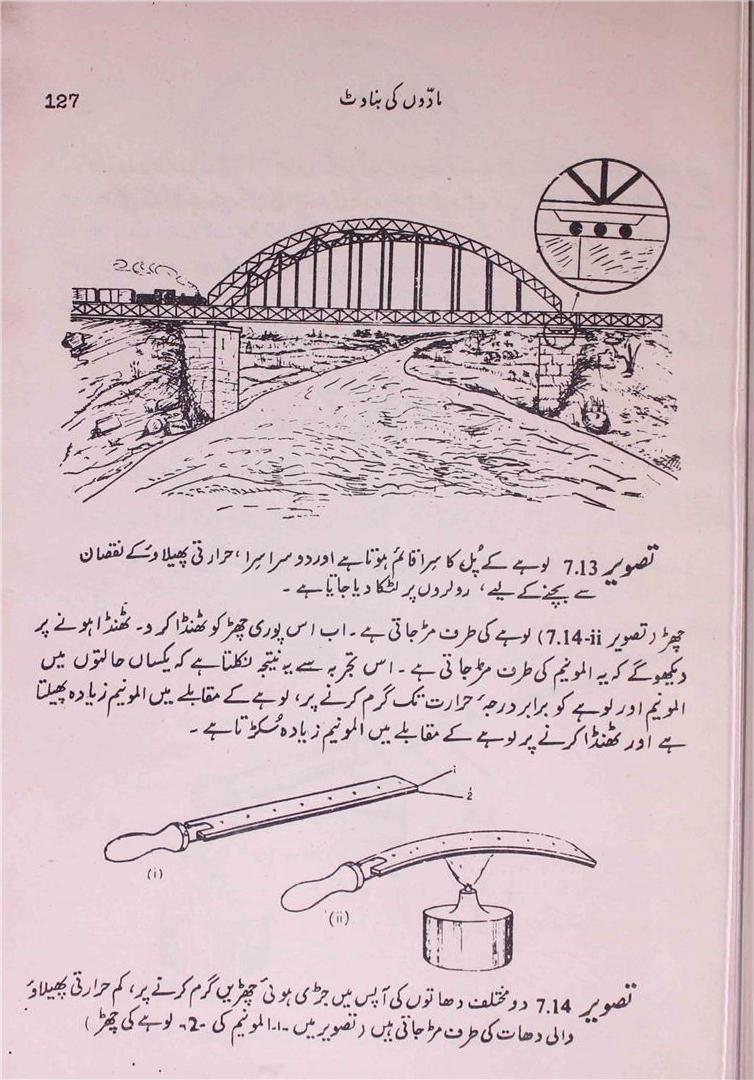 مادّوں کی بناوٹ
127
تصویر 7.13 لوہے کے پُل کا سِرا قائم ہوتا ہے اور دوسرا سِرا، حرارتی پھیلاؤ کے نقصان
سے بچنے کے لیے، رولروں پر لٹکا دیا جاتا ہے۔
چھڑ (تصویر 7.14-ii) لوہے کی طرف مڑ جاتی ہے۔ اب اس پوری چھڑ کو ٹھنڈا کر دو۔ ٹھنڈا ہونے پر
دیکھو گے کہ یہ المونیم کی طرف مڑ جاتی ہے۔ اس تجربہ سے یہ نتیجہ نکلتا ہے کہ یکساں حالتوں میں
المونیم اور لوہے کو برابر درجہٴ حرارت تک گرم کرنے پر، لوہے کے مقابلے میں المونیم زیادہ پھیلتا
ہے اور ٹھنڈا کرنے پر لوہے کے مقابلے میں المونیم زیادہ سُکڑتا ہے۔
1
2
(i)
(ii)
تصویر 7.14 دو مختلف دھاتوں کی آپس میں جڑی ہوئی چھڑیں گرم کرنے پر، کم حرارتی پھیلاؤ
والی دھات کی طرف مڑ جاتی ہیں (تصویر میں -1- المونیم کی -2- لوہے کی چھڑ)